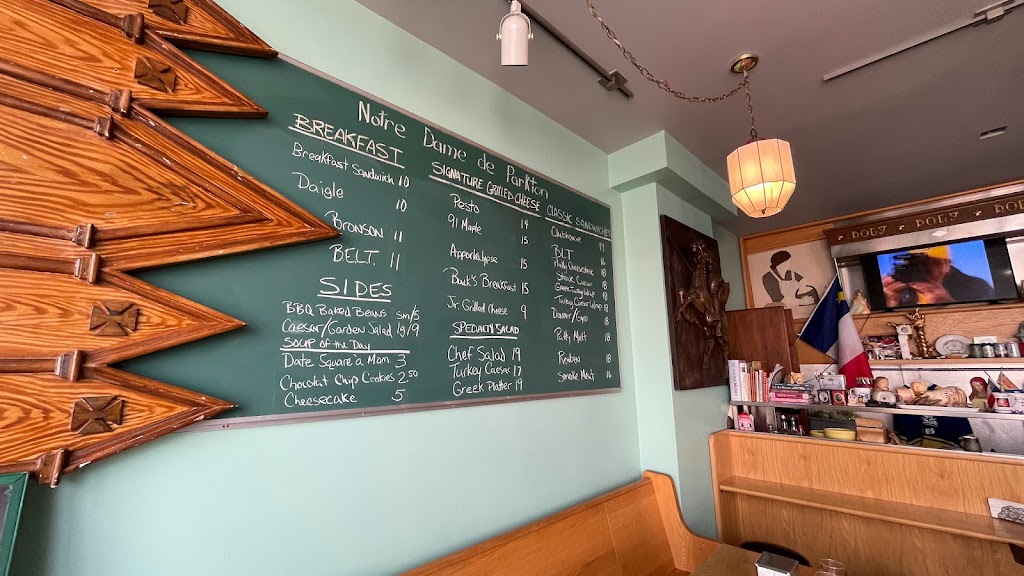 Notre Dame de Parkton
BREAKFAST
Breakfast Sandwich 10
Daigle 10
BRONSON 11
BELT. 11
SIDES
BBQ BAKED BEANS sm/5
Caesar/Garden Salad
SOUP of the DAY
DATE SQUARE à MAM 3
Chocolat Chip Cookies 2.50
Cheesecake 5
SIGNATURE GRILLED CHEESE
Pesto 14
91 Maple 15
Apporkalypse 15
Buck's Breakfast 15
Jr. Grilled Cheese 9
SPECIALTY SALAD
Chef Salad 19
Turkey Caesar 17
Greek Platter 19
CLASSIC SANDWICHES
Clubhouse
BLT 16
Steak
Turkey
Patty Melt 18
Reuben 18
Smoke Meat 16
ROLY POLY